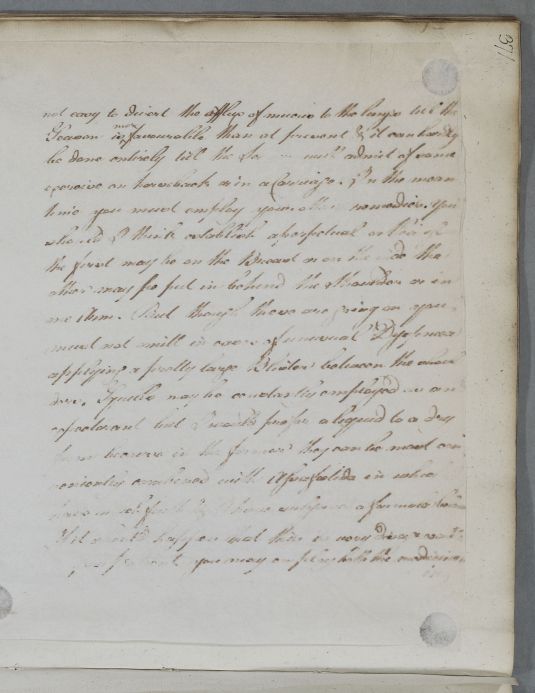 not easy to divert the afflux of mucus to the lungs till the
Season is more favourable than at present & it can hardly
be done entirely till the admit of some
exercise on horseback or in a Carriage. In the mean
time you must employ your other remedies. You
should I think establish a perpetual
the first may be on the Breast or on the side the
other may be put in behind the Shoulder or in
one Arm. But though these are going on you
must not omit in case of unusual Dyspnoea
applying a pretty large Blister between the shoul
ders. Squills may be constantly employed as an
expectorant but I would prefer a liquid to a dry
form because in the former they can be most con
veniently combined with Assafoetida in which
have a formula
If it should happen that there is very
you may employ both the medicines